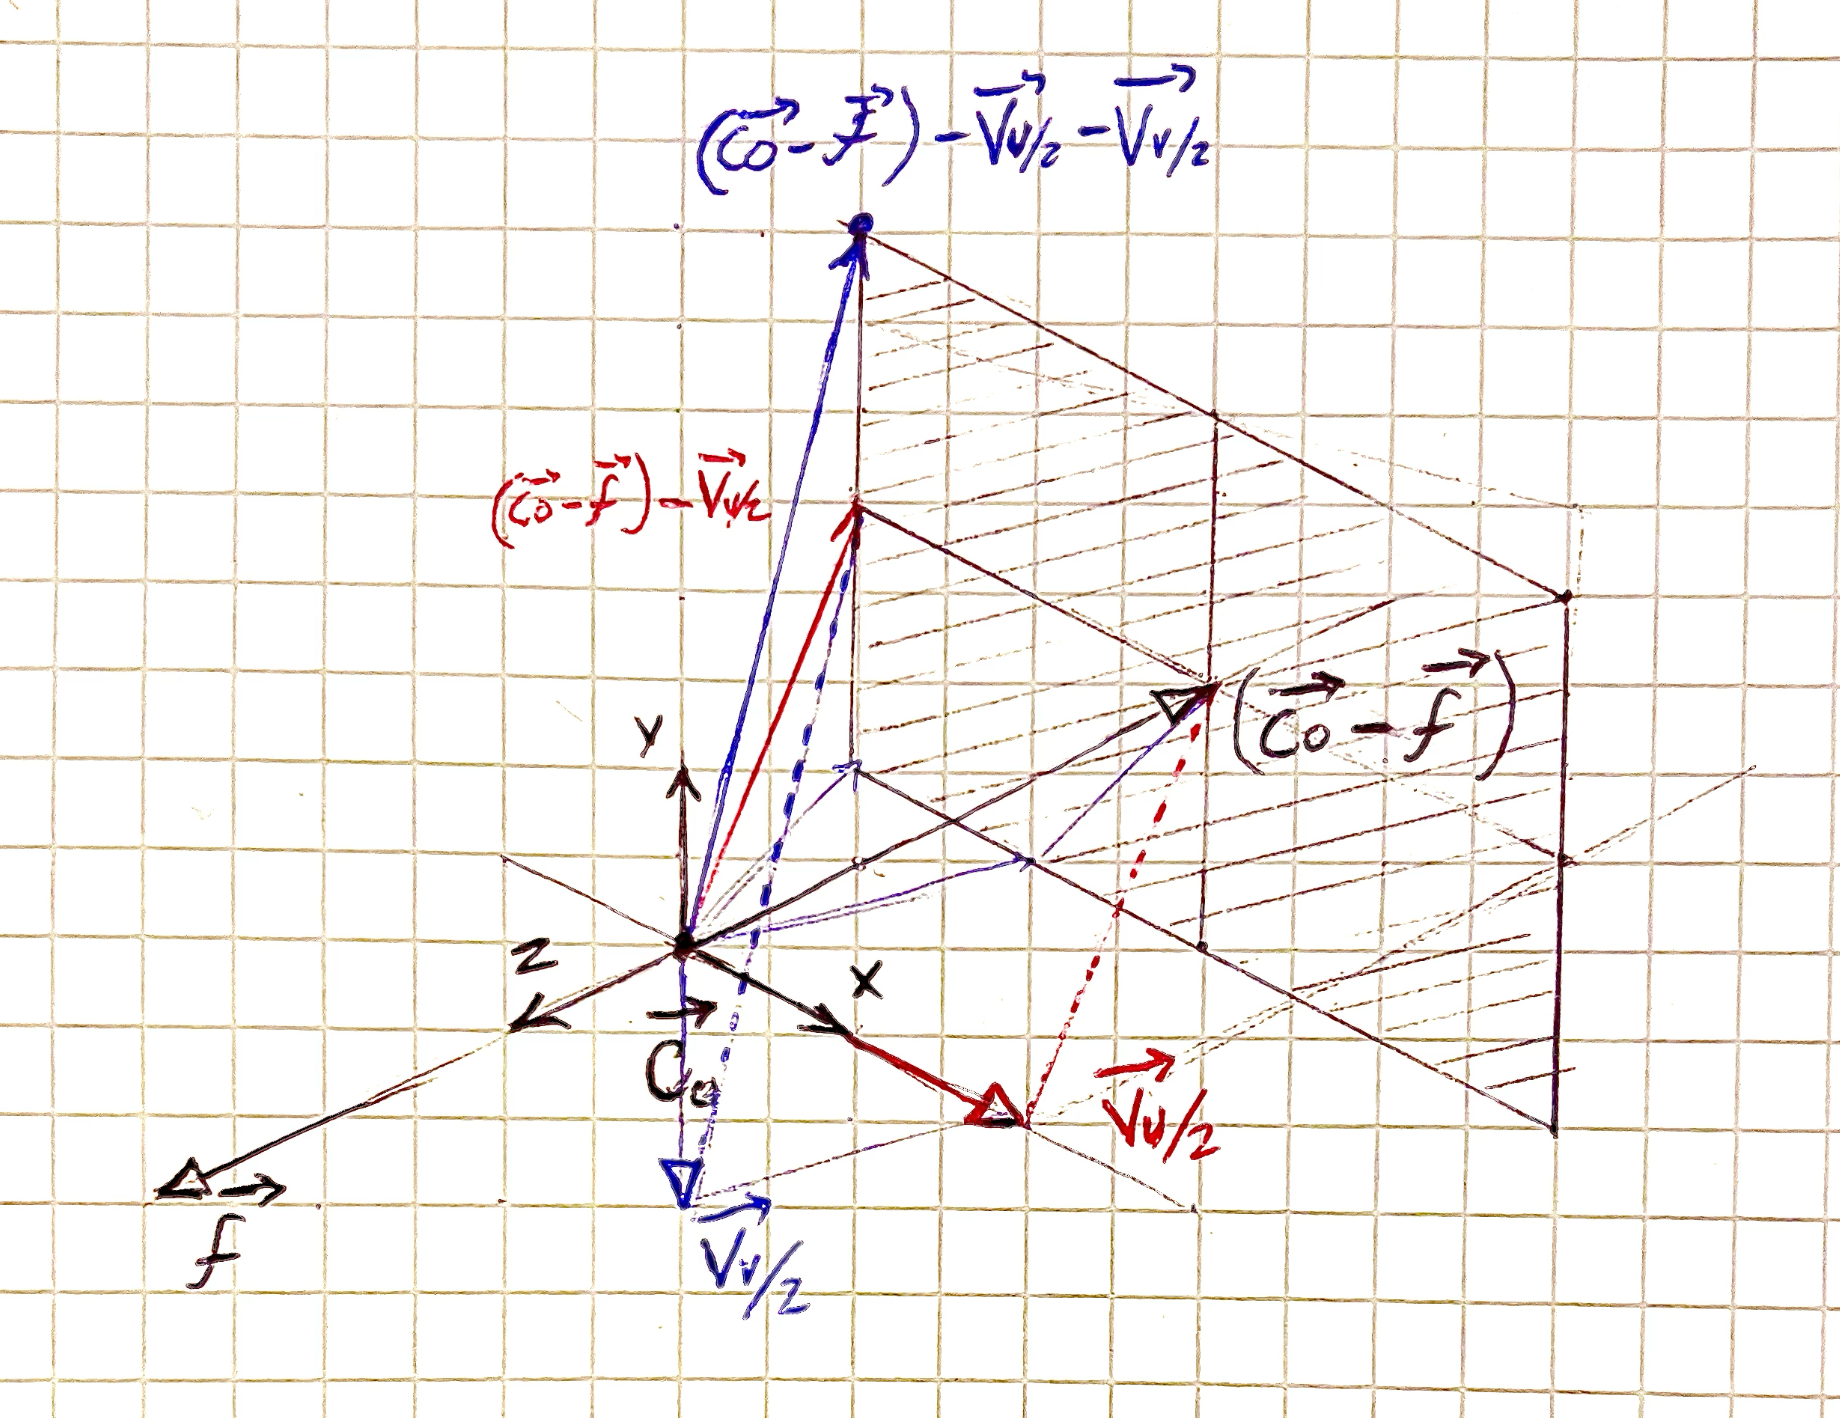 (Co - f) - Vu/2 - Vv/2
(Co - f) - Vu/2
(Co - f)
Y
Z
X
Co
Vu/2
f
Vv/2